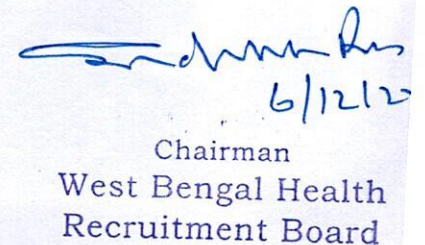 6/12/2
Chairman
West Bengal Health
Recruitment Board